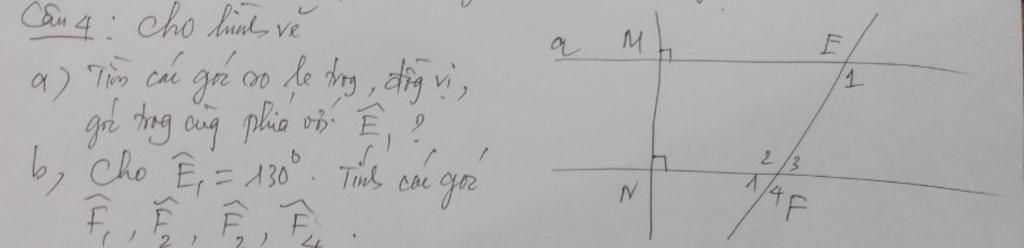 Câu 4 : Cho hình vẽ
a) Tìm các góc so le trong, đồng vị,
góc trong cùng phía với Ê₁ ?
b, Cho Ê₁ = 130⁰. Tính các góc
F̂₁, F̂₂, F̂₃, F̂₄.
a M E
1
2 3
N 1 4 F